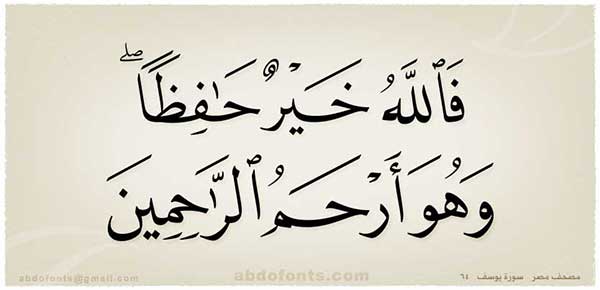 فَٱللَّهُ خَيْرٌ حَـٰفِظًا ۖ
وَهُوَ أَرْحَمُ ٱلرَّٰحِمِينَ
abdofonts@gmail.com abdofonts.com مصحف مصر سورة يوسف ٦٤